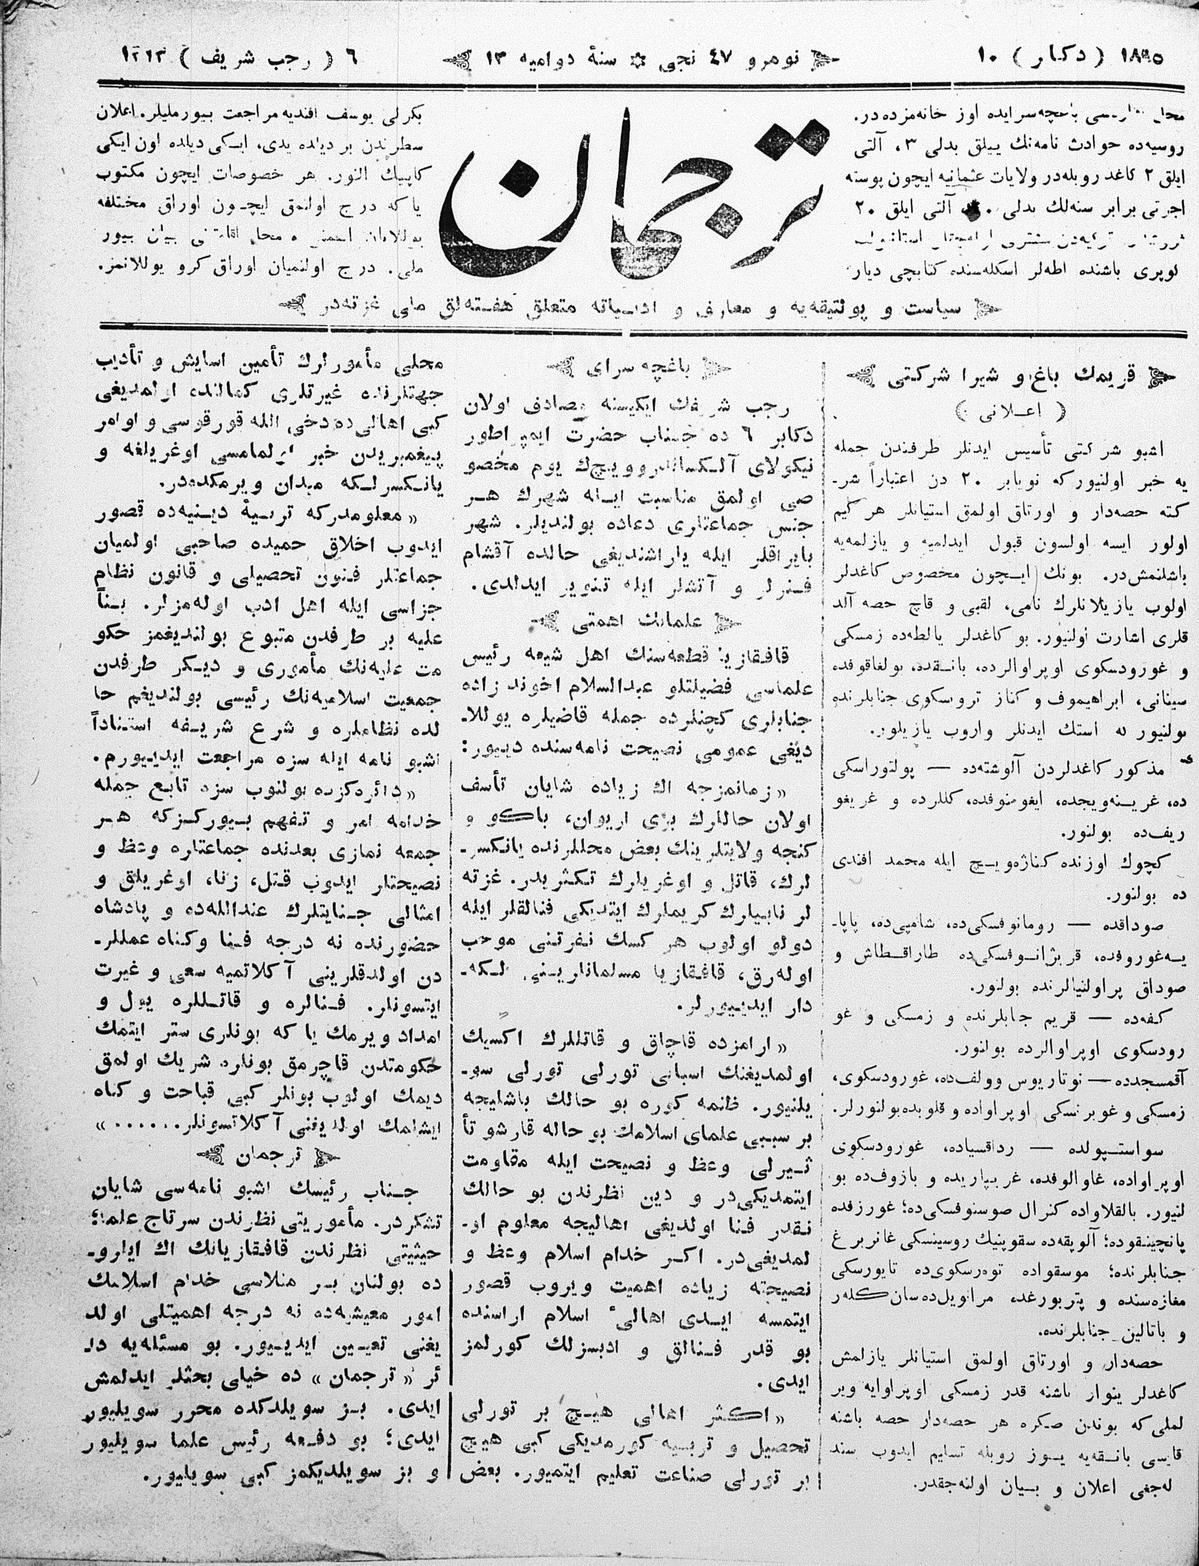 ١٨٩٥ ( دكابر ) ١٠
نومرو ٤٧ نجی ✲ سنهٔ دوامیه ١٣
٦ ( رجب شریف ) ١٣١٣
باغچه‌سرایده اوز خانه‌مزده‌در.
روسیه‌ده حوادث نامه‌نك ییللق بدلی ٣، آلتی
ایلق ٢ كاغد روبله‌در ولایات عثمانیه ایچون پوسته
اجرتی برابر سنه‌لك بدلی آلتی ایلق ٢٠
لوپری باشنده اطه‌لر اسكله‌سنده كتابچی دیار
ترجمان
بكرلی یوسف افندیه مراجعت بیورملیلر. اعلان
سطرندن بر دیلده یدی، ایكی دیلده اون ایكی
كاپیك النور. هر خصوصات ایچون مكتوب
یا كه درج اولنمق ایچون اوراق مختلفه
ملی. درج اولنمیان اوراق كرو یوللانمز.
سیاست و پولتیقه‌یه و معارف و ادبیاته متعلق هفته‌لق ملی غزته‌در
قریمك باغ و شیرا شركتی
( اعلانی )
اشبو شركتی تأسیس ایدنلر طرفندن جمله
یه خبر اولنیوركه نویابر ٢٠ دن اعتباراً شر-
كته حصه‌دار و اورتاق اولمق استیانلر هر كیم
اولور ایسه اولسون قبول ایدلمیه و یازلمه‌یه
باشلنمش‌در. بونك ایچون مخصوص كاغدلر
اولوب یازیلانلرك نامی، لقبی و قاچ حصه آلد
قلری اشارت اولنیور. بو كاغدلر یالطه‌ده زمسكی
و غورودسكوی اوپراوالرده، بانقه‌ده، بولغاقوفده
سینانی، ابراهیموف و كناز تروسكوی جنابلرنده
بولنیور كه استك ایدنلر واروب یازیلور.
مذكور كاغدلردن آلوشته‌ده — پولتوراسكی
ده، غرینه‌ویچده، ایغومنوفده، كللرده و غریغو
ریف‌ده بولنور.
كچوك اوزنده كناژه‌ویچ ایله محمد افندی
ده بولنور.
صوداقده — رومانوفسكی‌ده، شامبی‌ده، پاپا-
یه‌غوروفده، قریژانوفسكی‌ده طاراقطاش و
صوداق پراولنیالرنده بولنور.
كفه‌ده — قریم جنابلرنده و زمسكی و غو
رودسكوی اوپراوالرده بولنور.
آقمسجدده — نوتاریوس وولف‌ده، غورودسكوی،
زمسكی و غوبرنسكی اوپراواده و قلوبده بولنورلر.
سواستپولده — رداقسیاده، غورودسكوی
اوپراواده، غاوالوفده، غریپاریده و بازوف‌ده بو
لنیور. بالقلاواده كنرال صوسنوفسكی‌ده؛ غورزفده
پانچینقوده؛ آلوپقه‌ده سقوپنیك روسینسكی غانربرغ
جنابلرنده؛ موسقواده توه‌رسكوی‌ده تایورسكی
مغازه‌سنده و پتربورغده، مرانویل‌ده سان‌كله‌ر
و باتالین جنابلرنده.
حصه‌دار و اورتاق اولمق استیانلر یازلمش
كاغدلر ینوار باشنه قدر زمسكی اوپراوایه ویر
لملی كه بوندن صكره هر حصه‌دار حصه باشنه
قایسی بانقه‌یه یوز روبله تسلیم ایدوب سند
له‌جغی اعلان و بیان اولنه‌جقدر.
باغچه سرای
رجب شریفك ایكیسنه مصادف اولان
دكابر ٦ ده جناب حضرت ایمپراطور
نیكولای آلكساندروویچك یوم مخصو
صی اولمق مناسبت ایله شهرك هر
جنس جماعتلری دعاده بولندیلر. شهر
بایراقلر ایله یاراشندیغی حالده آقشام
فنرلر و آتشلر ایله تنویر ایدلدی.
علمانك اهمتی
قافقازیا قطعه‌سنك اهل شیعه رئیس
علماسی فضیلتلو عبدالسلام اخوند زاده
جنابلری كچنلرده جمله قاضیلره یوللا-
دیغی عمومی نصیحت نامه‌سنده دییور:
«زمانمزجه اك زیاده شایان تأسف
اولان حاللرك بری اریوان، باكو و
كنجه ولایتلرینك بعض محللرنده یانكسر-
لرك، قاتل و اوغریلرك تكثریدر. غزته
لر نابیلرك كریملرك ایتدیكی فنالقلر ایله
دولو اولوب هر كسك نفرتنی موجب
اوله‌رق، قافقازیا مسلمانلرینی لكه-
دار ایدییورلر.
«ارامزده قاچاق و قاتللرك اكسیك
اولمدیغنك اسبابی تورلی تورلی سو-
یلنیور. ظنمه كوره بو حالك باشلیجه
بر سببی علمای اسلامك بو حاله قارشو تأ
ثیرلی وعظ و نصیحت ایله مقاومت
ایتمدیكی‌در و دین نظرندن بو حالك
نقدر فنا اولدیغی اهالیجه معلوم او-
لمدیغی‌در. اكر خدام اسلام وعظ و
نصیحته زیاده اهمیت ویروب قصور
ایتمسه ایدی اهالیٔ اسلام اراسنده
بو قدر فنالق و ادبسزلك كورلمز
ایدی.
«اكثر اهالی هیچ بر تورلی
تحصیل و تربیه كورمدیكی كبی هیچ
بر تورلی صناعت تعلیم ایتمیور. بعض
محلی مأمورلرك تأمین اسایش و تأدیب
جهتلرنده غیرتلری كمالنده اولمدیغی
كبی اهالی‌ده دخی الله قورقوسی و اوامر
پیغمبریدن خبر اولمامسی اوغریلغه و
یانكسرلكه میدان ویرمكده‌در.
«معلومدركه تربیهٔ دینیه‌ده قصور
ایدوب اخلاق حمیده صاحبی اولمیان
جماعتلر فنون تحصیلی و قانون نظام
جزاسی ایله اهل ادب اوله‌مزلر. بناً
علیه بر طرفدن متبوع بولندیغمز حكو
مت علیه‌نك مأموری و دیكر طرفدن
جمعیت اسلامیه‌نك رئیسی بولندیغم حا
لده نظاملره و شرع شریفه استناداً
اشبو نامه ایله سزه مراجعت ایدییورم.
«دائره‌كزده بولنوب سزه تابع جمله
خدامه امر و تفهم بیوركزكه هر
جمعه نمازی بعدنده جماعتلره وعظ و
نصیحتلر ایدوب قتل، زنا، اوغریلق و
امثالی جنایتلرك عندالله‌ده و پادشاه
حضورنده نه درجه فنا و كناه عمللر-
دن اولدقلرینی آكلاتمیه سعی و غیرت
ایتسونلر. فنالره و قاتللره یول و
امداد ویرمك یا كه بونلری ستر ایتمك
حكومتدن قاچرمق بونلره شریك اولمق
دیمك اولوب بونلر كبی قباحت و كناه
ایشلمك اولدیغنی آكلاتسونلر......»
ترجمان
جناب رئیسك اشبو نامه‌سی شایان
تشكردر. مأموریتی نظرندن سرتاج علما؛
حیثیتی نظرندن قافقازیانك اك ایلرو-
ده بولنان بر منلاسی خدام اسلامك
امور معیشه‌ده نه درجه اهمیتلی اولد
یغنی تعیین ایدییور. بو مسئله‌یه دا-
ئر «ترجمان» ده خیلی بحثلر ایدلمش
ایدی. بز سویلدكده محرر سویلیور
ایدی؛ بو دفعه رئیس علما سویلیور
و بز سویلدیكمز كبی سویلیور.